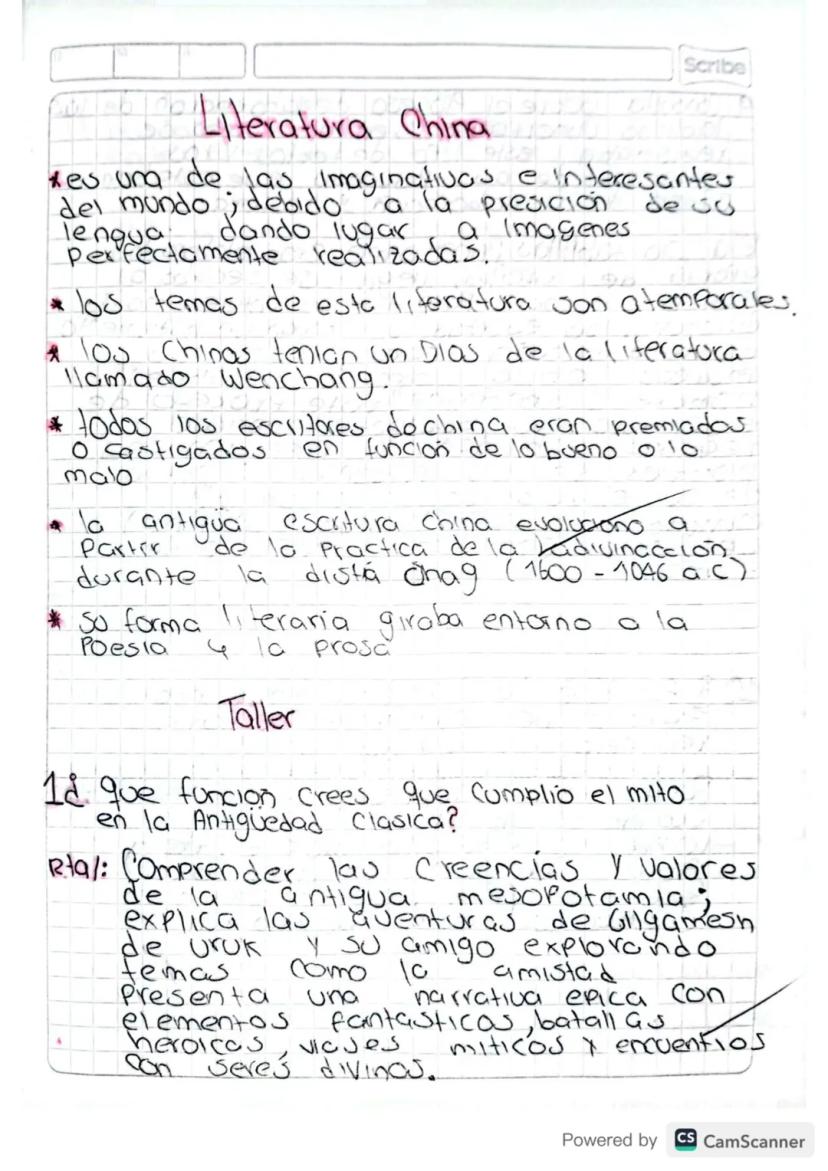 Scribe
Literatura China
* es una de las imaginativas e interesantes
del mundo; debido a la presición de su
lengua dando lugar a imagenes
perfectamente realizadas.
* los temas de esta literatura son atemporales.
* los Chinos tenian un Dios de la literatura
llamado Wenchang.
* todos los escritores de china eran premiados
o castigados en función de lo bueno o lo
malo
* la antigua escritura china evoluciono a
Partir de la Practica de la adivinacción
durante la distá Chag (1600 - 1046 a.c)
* su forma literaria giraba entorno a la
Poesia y la prosa
Taller
1¿ que función crees que cumplio el mito
en la Antigüedad Clasica?
Rta/: Comprender las Creencias y valores
de la antigua mesopotamia;
explica las aventuras de Gilgamesh
de uruk y su amigo explorando
temas como la amistad
Presenta una narrativa epica con
elementos fantasticos, batallas
heroicas, viajes miticos y encuentros
con seres divinos.
Powered by CS CamScanner